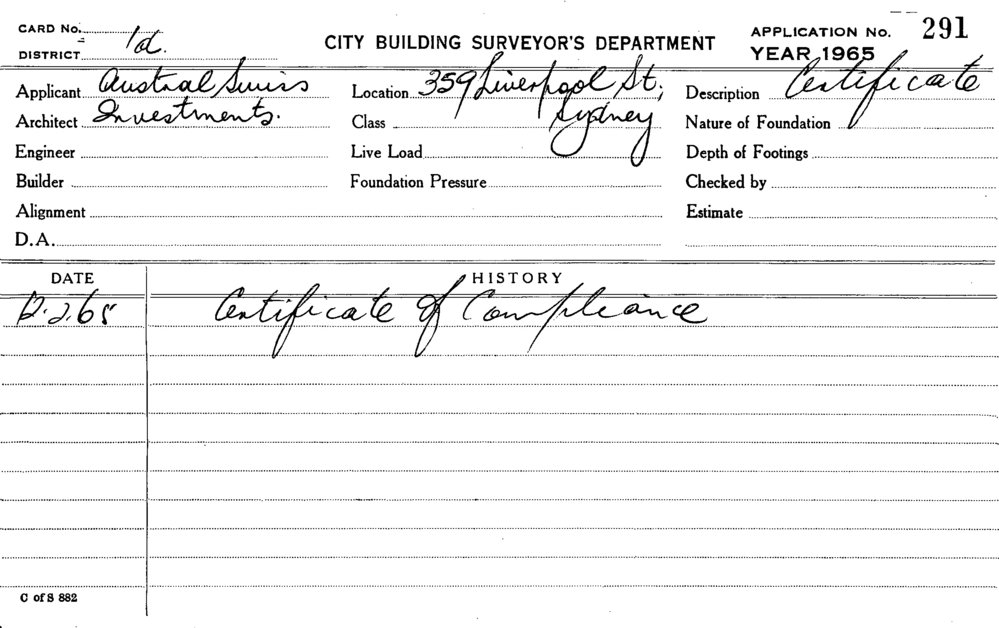 CARD No.
DISTRICT 1d.
CITY BUILDING SURVEYOR'S DEPARTMENT
APPLICATION No. 291
YEAR 1965
Applicant Austral Swiss
Location 359 Liverpool St,
Description Certificate
Architect Investments.
Class Sydney
Nature of Foundation
Engineer
Live Load
Depth of Footings
Builder
Foundation Pressure
Checked by
Alignment
Estimate
D.A.
DATE HISTORY
12.2.65 Certificate of Compliance
C of S 882